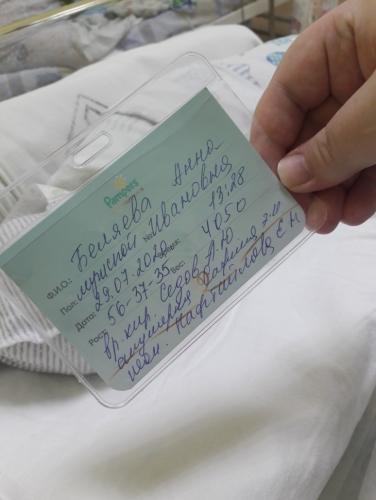 Pampers
Ф.И.О.: Беляева Анна
Ивановна
Пол: мужской №
Дата: 29.07.2020 Время: 19:28
Рост: 56-37-35 Вес: 4050
Вр. хир. Седов А.Ю
акушерка
неон.